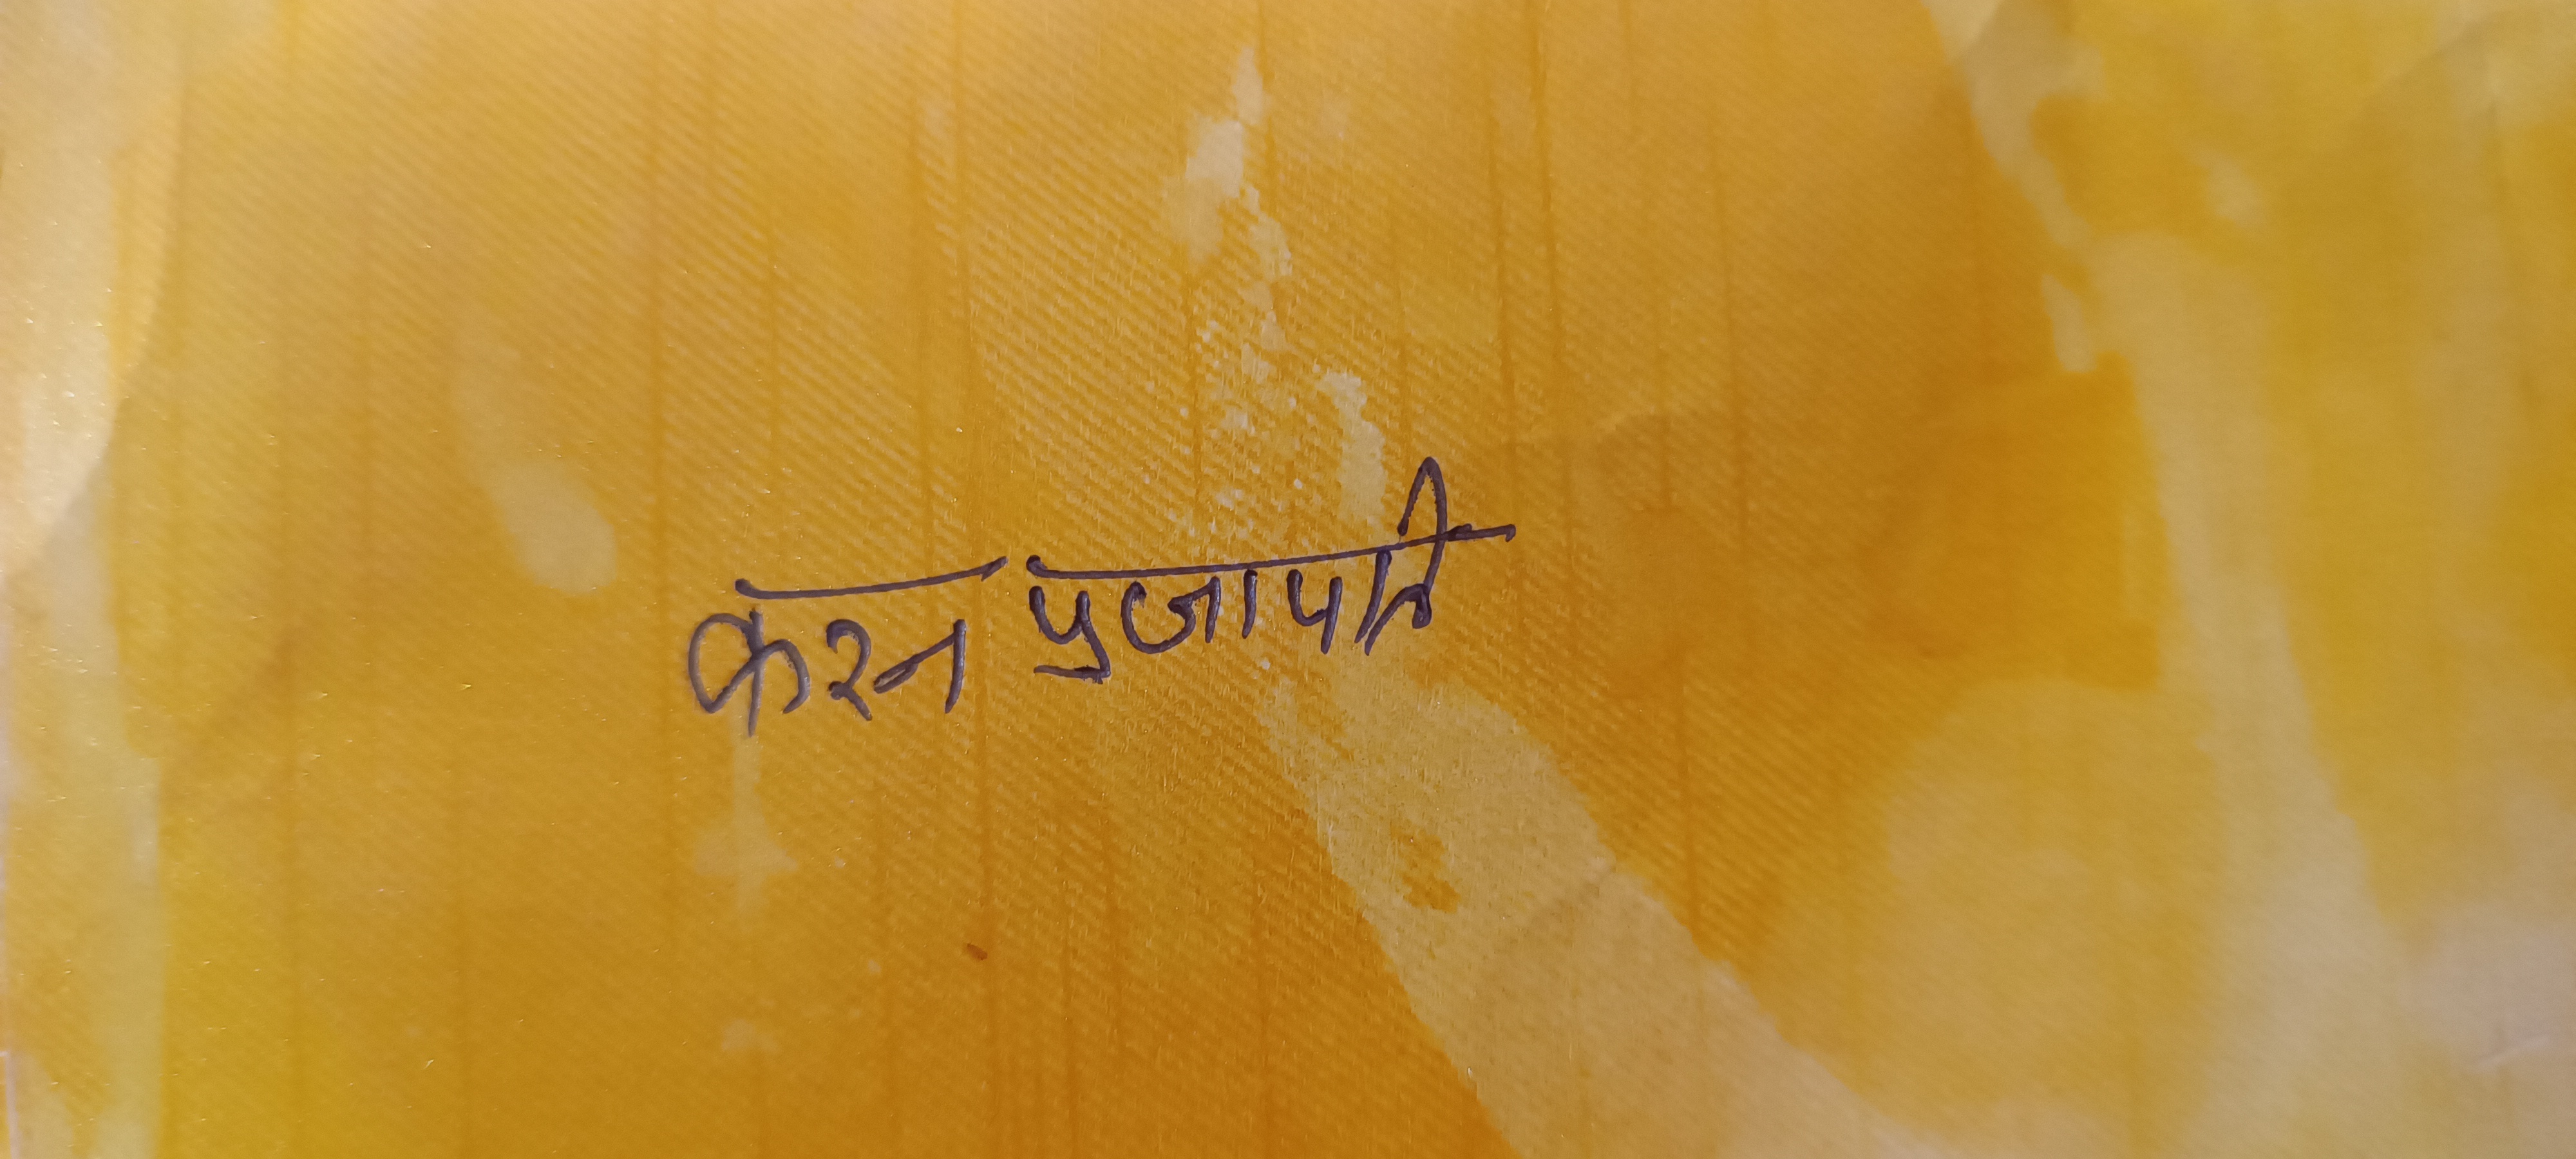 करन प्रजापति